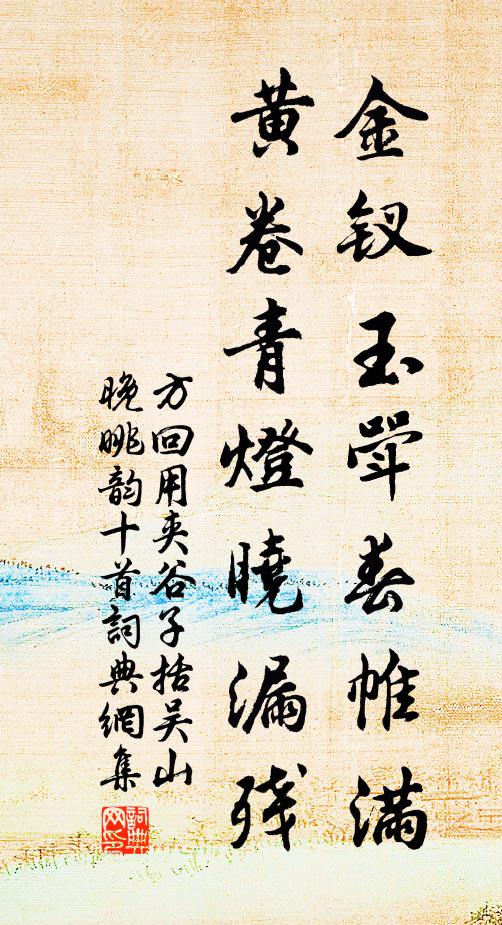 金钗玉斝春帷满
黄卷青燈曉漏残
方回用夹谷子括吴山
晚眺韵十首詞典網集
詞典
网印